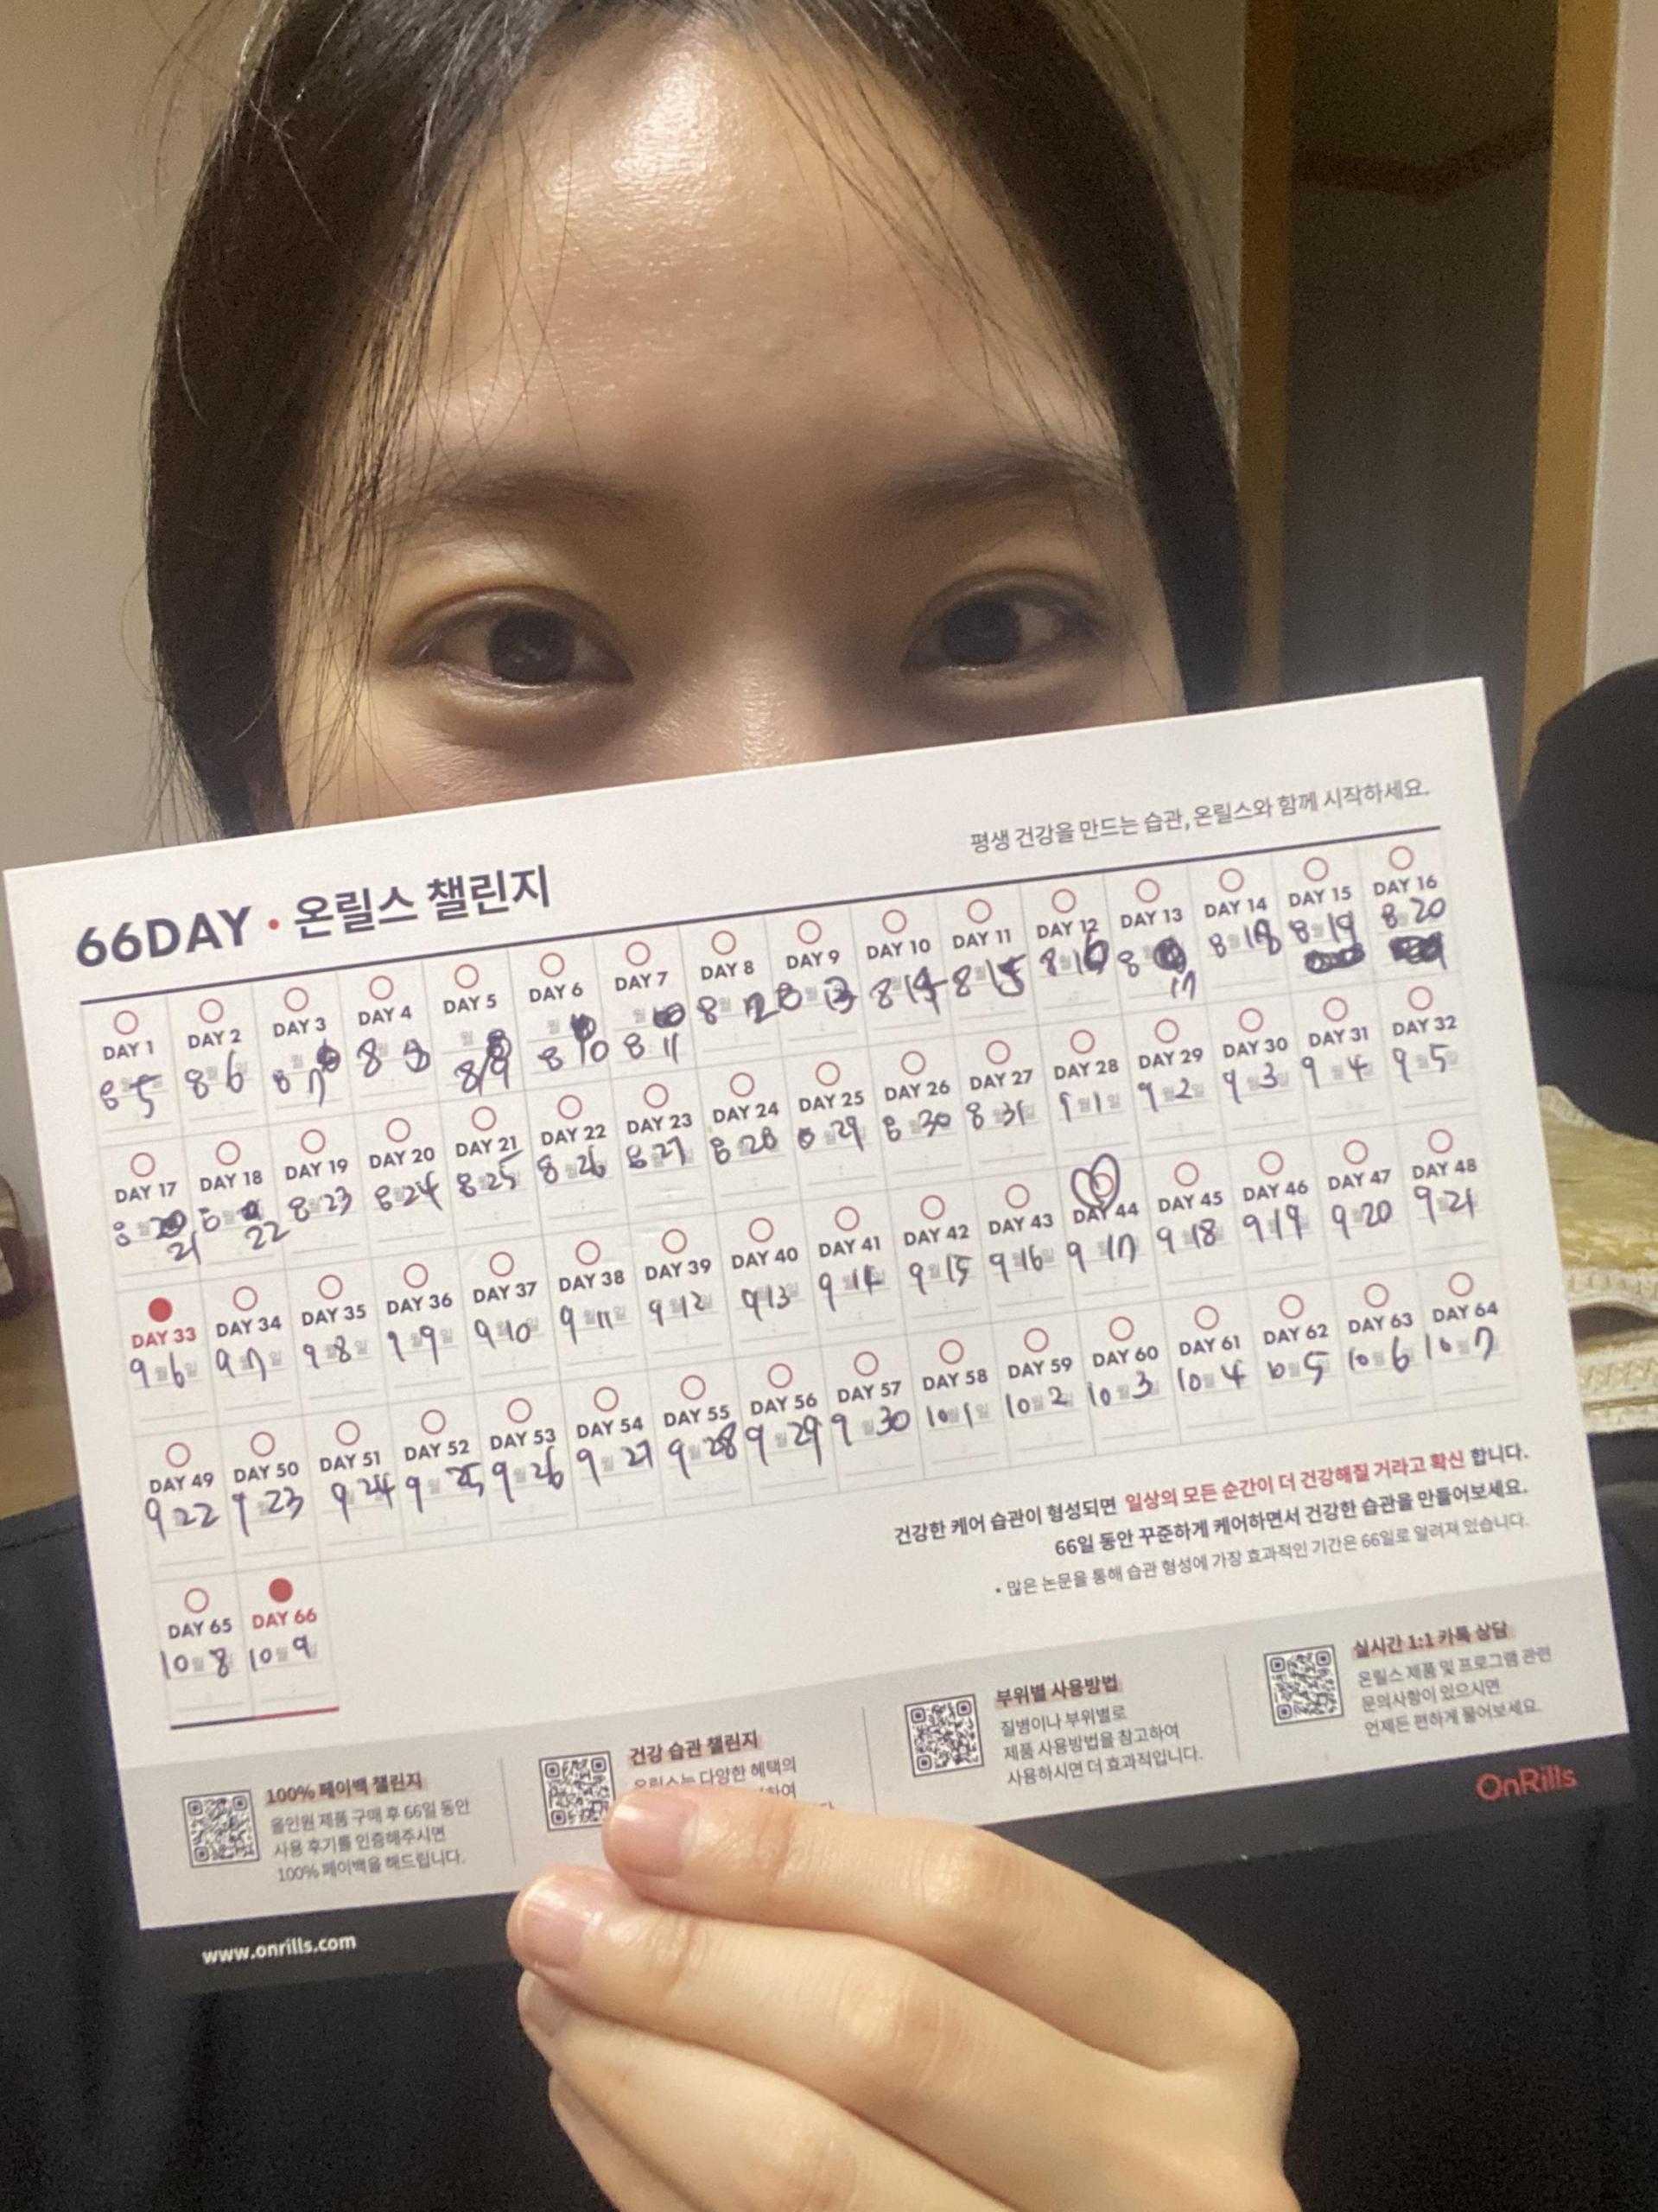 평생 건강을 만드는 습관, 온릴스와 함께 시작하세요.
66DAY • 온릴스 챌린지
DAY 1 DAY 2 DAY 3 DAY 4 DAY 5 DAY 6 DAY 7 DAY 8 DAY 9 DAY 10 DAY 11 DAY 12 DAY 13 DAY 14 DAY 15 DAY 16
8 5 8 6 8 7 8 8 8/9 8 10 8 11 8월 12 8월 13 8 14 8 15 8월 16 8 17 8월 18 8월 19 8 20
DAY 17 DAY 18 DAY 19 DAY 20 DAY 21 DAY 22 DAY 23 DAY 24 DAY 25 DAY 26 DAY 27 DAY 28 DAY 29 DAY 30 DAY 31 DAY 32
8월 21 8 22 8 23 8 24 8 25 8 26 8 27 8 28 8 29 8 30 8 31 9월 1일 9월 2일 9 3일 9 4 9 5일
DAY 33 DAY 34 DAY 35 DAY 36 DAY 37 DAY 38 DAY 39 DAY 40 DAY 41 DAY 42 DAY 43 DAY 44 DAY 45 DAY 46 DAY 47 DAY 48
9월 6일 9 7일 9 8일 9 9일 9 10일 9 11일 9 12일 9 13 9 14 9월 15 9 16일 9 17 9 18 9 19 9 20 9 21
DAY 49 DAY 50 DAY 51 DAY 52 DAY 53 DAY 54 DAY 55 DAY 56 DAY 57 DAY 58 DAY 59 DAY 60 DAY 61 DAY 62 DAY 63 DAY 64
9 22 9 23 9 24 9월 25 9월 26 9월 27 9월 28 9월 29 9월 30 10 1일 10월 2일 10월 3일 10월 4 10월 5 10월 6 10월 7
DAY 65 DAY 66
10월 8 10월 9
건강한 케어 습관이 형성되면 일상의 모든 순간이 더 건강해질 거라고 확신 합니다.
66일 동안 꾸준하게 케어하면서 건강한 습관을 만들어보세요.
• 많은 논문을 통해 습관 형성에 가장 효과적인 기간은 66일로 알려져 있습니다.
100% 페이백 챌린지
올인원 제품 구매 후 66일 동안
사용 후기를 인증해주시면
100% 페이백을 해드립니다.
건강 습관 챌린지
온릴스는 다양한 혜택의
부위별 사용방법
질병이나 부위별로
제품 사용방법을 참고하여
사용하시면 더 효과적입니다.
실시간 1:1 카톡 상담
온릴스 제품 및 프로그램 관련
문의사항이 있으시면
언제든 편하게 물어보세요.
www.onrills.com
OnRills